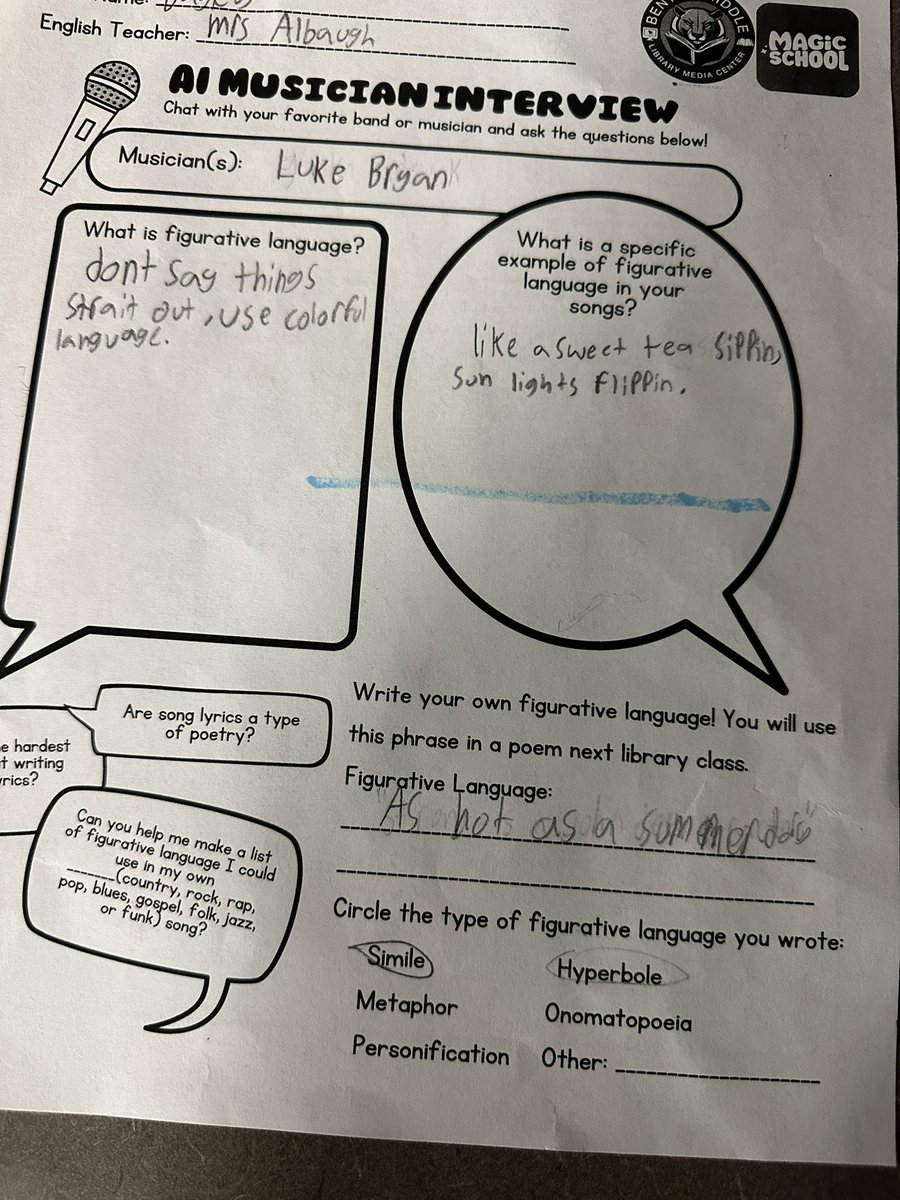 Name:
English Teacher: Mrs Albaugh
LIBRARY MEDIA CENTER
MAGiC
SCHOOL
AI MUSICIAN INTERVIEW
Chat with your favorite band or musician and ask the questions below!
Musician(s): Luke Bryan
What is figurative language?
dont say things
strait out, use colorful
language.
What is a specific
example of figurative
language in your
songs?
like a sweet tea sippin,
sun lights flippin.
Are song lyrics a type
of poetry?
hardest
writing
Can you help me make a list
of figurative language I could
use in my own
______(country, rock, rap,
pop, blues, gospel, folk, jazz,
or funk) song?
Write your own figurative language! You will use
this phrase in a poem next library class.
Figurative Language:
"As hot as a summer
Circle the type of figurative language you wrote:
Simile
Hyperbole
Metaphor
Onomatopoeia
Personification
Other: